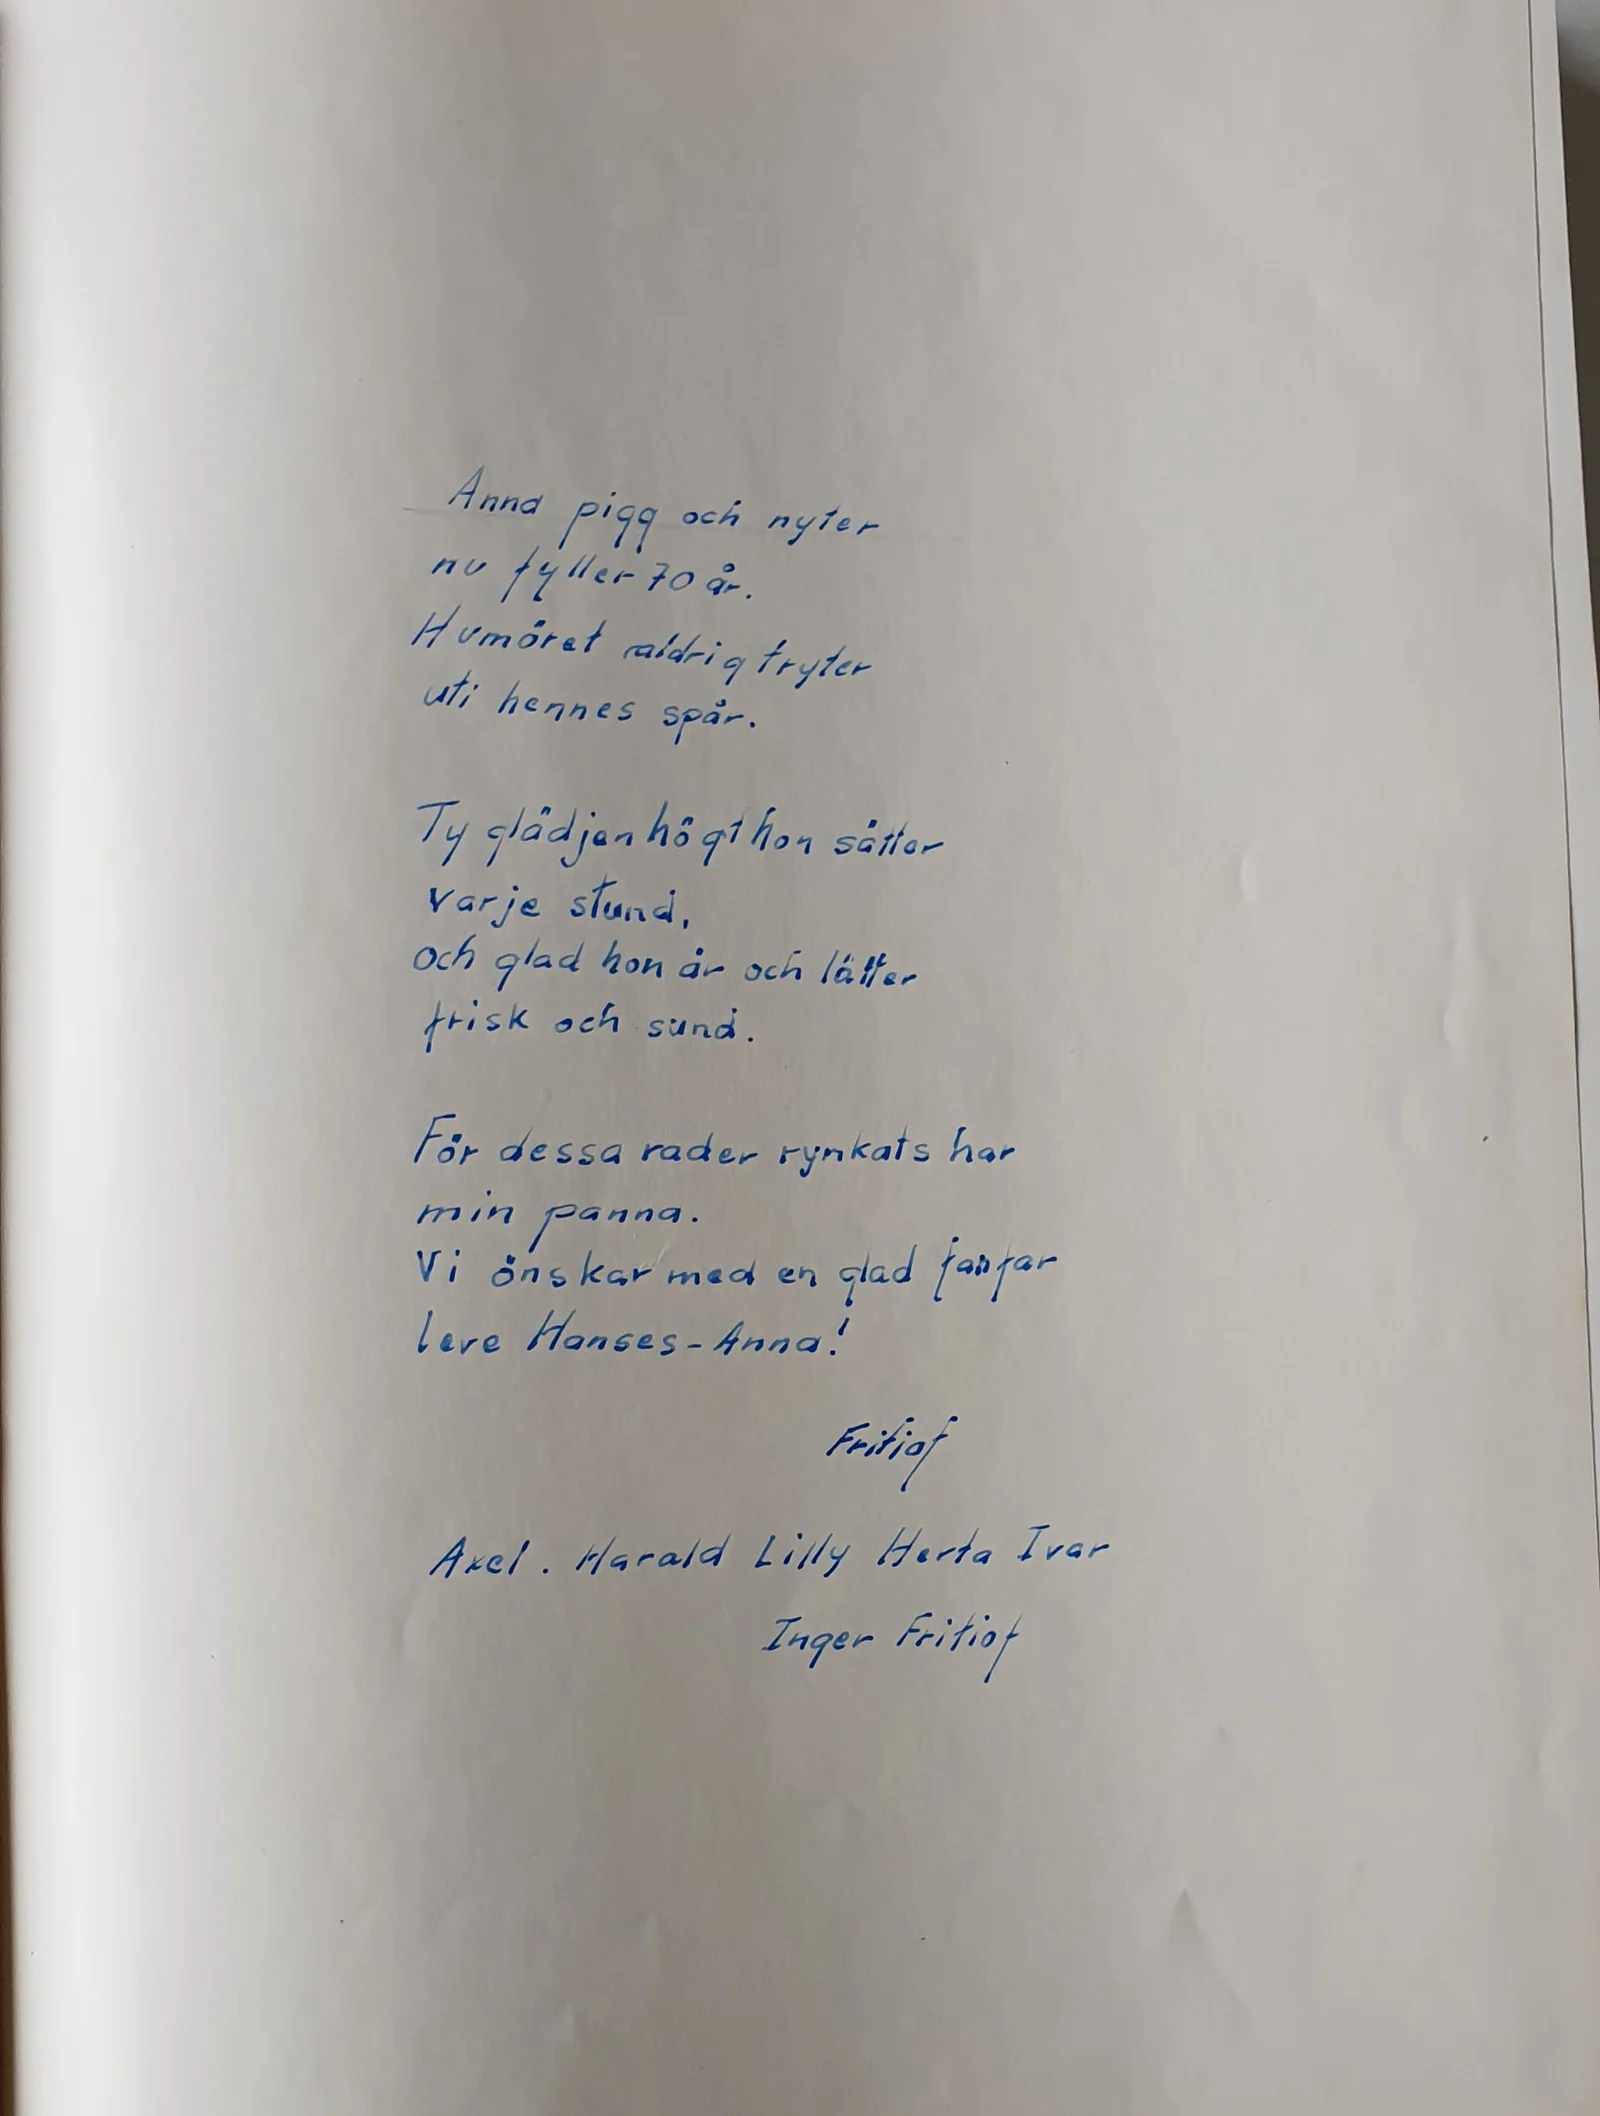 Anna pigg och nyter
nu fyller 70 år.
Humöret aldrig tryter
uti hennes spår.
Ty glädjen högt hon sätter
varje stund,
och glad hon är och lätter
frisk och sund.
För dessa rader rynkats har
min panna.
Vi önskar med en glad fanfar
leve Hanses-Anna!
Fritiof
Axel. Harald Lilly Herta Ivar
Inger Fritiof